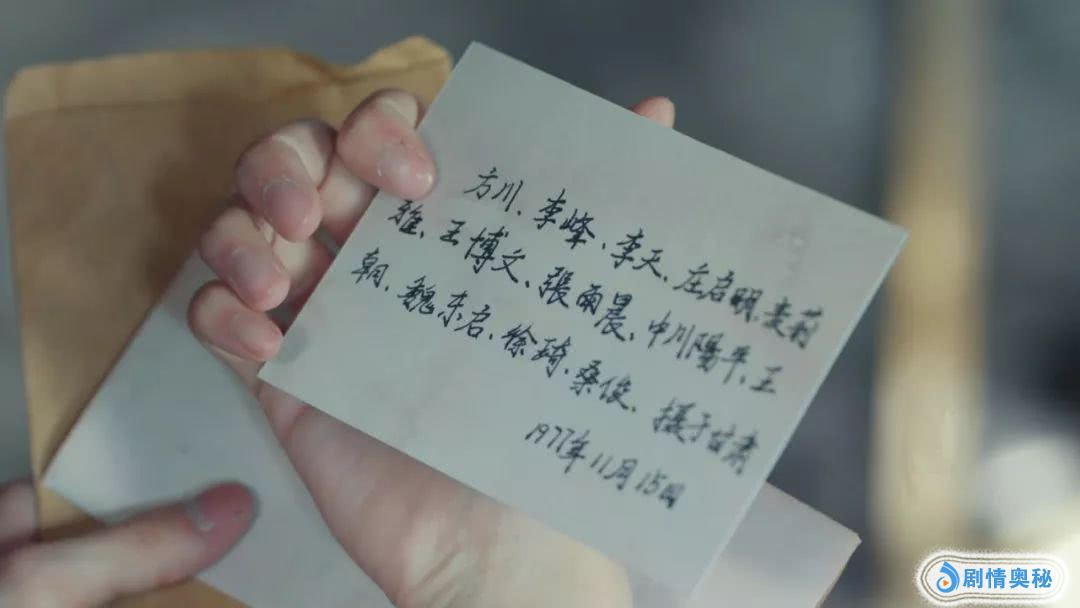 方川、李峰、李天、庄启明、麦莉
雅、王博文、張雨晨、中川陽平、王
朝、魏东启、徐琦、桑俊、摄于甘肃
1977年11月15日
剧情奥秘